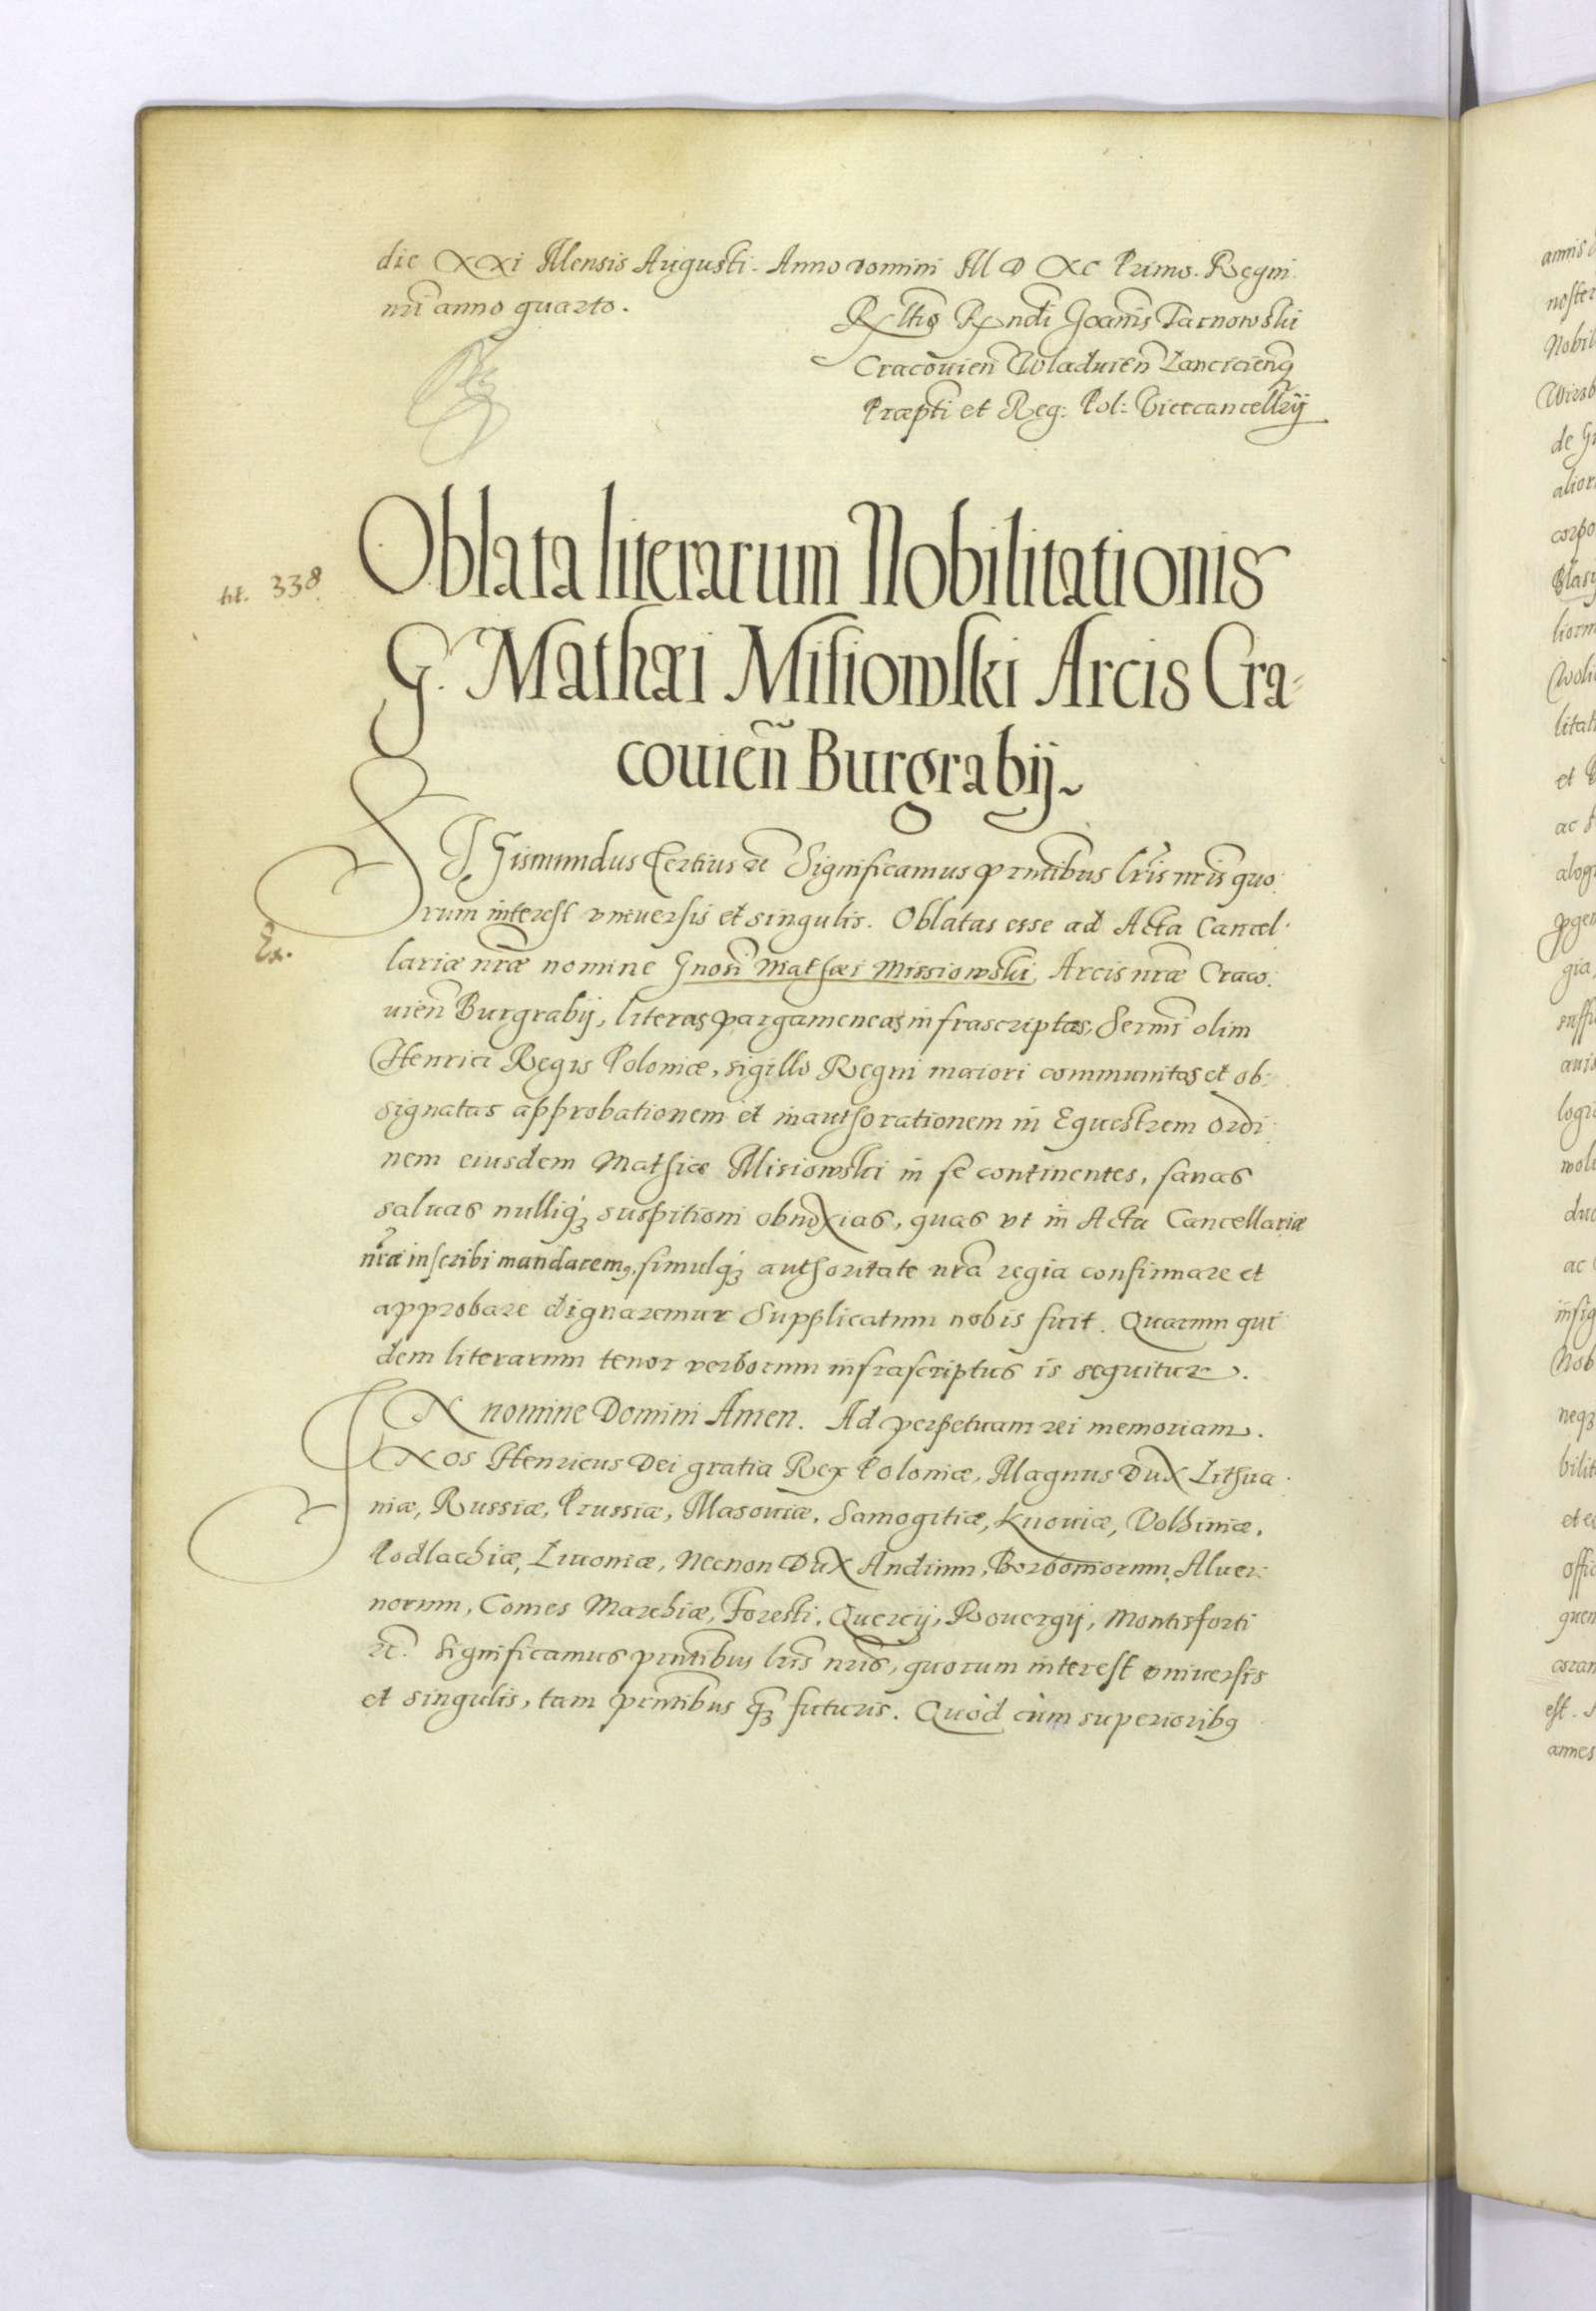 die XXi Mensis Augusti. Anno domini M D XC Primo. Regni
nri anno quarto.
Rltio Rndi Joanis Tarnowski
Cracouien Wladuien Lancicienq
Præpti et Reg: Pol: Vicecancellrij
lit. 338
Oblata literarum Nobilitationis
G. Mathæi Misiowski Arcis Cra-
couien Burgrabij
SIGismundus Tertius etc Significamus prntibus lris nris quo
rum interest vniuersis et singulis. Oblatas esse ad Acta Cancel
Ex.
lariæ nræ nomine Gnosi Mathæi Missiowski Arcis nræ Craco
uien Burgrabij, literas pargameneas infrascriptas, Sermi olim
Henrici Regis Poloniæ, sigillo Regni maiori communitas et ob
signatas approbationem et inauthorationem in Equestrem ordi
nem eiusdem Mathiæ Misiowski in se continentes, sanas
saluas nulliq3 suspitioni obnoxias, quas vt in Acta Cancellariæ
nræ inscribi mandarem9, simulq3 authoritate nra regia confirmare et
approbare dignaremur Supplicatum nobis fuit. Quarum qui
dem literarum tenor verborum infrascriptus is sequitur.
IN nomine Domini Amen. Ad perpetuam rei memoriam.
Nos Henricus Dei gratia Rex Poloniæ, Magnus Dux Lithua
niæ, Russiæ, Prussiæ, Masouiæ, Samogitiæ, Kuouiæ, Volhiniæ,
Podlachiæ, Liuoniæ, Necnon Dux Andium, Borboniorum, Aluer
norum, Comes Marchiæ, Foresti, Quercij, Rouergij, Montisforti
etc. Significamus prntibus lris nris, quorum interest vniuersis
et singulis, tam prntibus q3 futuris. Quòd cùm superiorib9